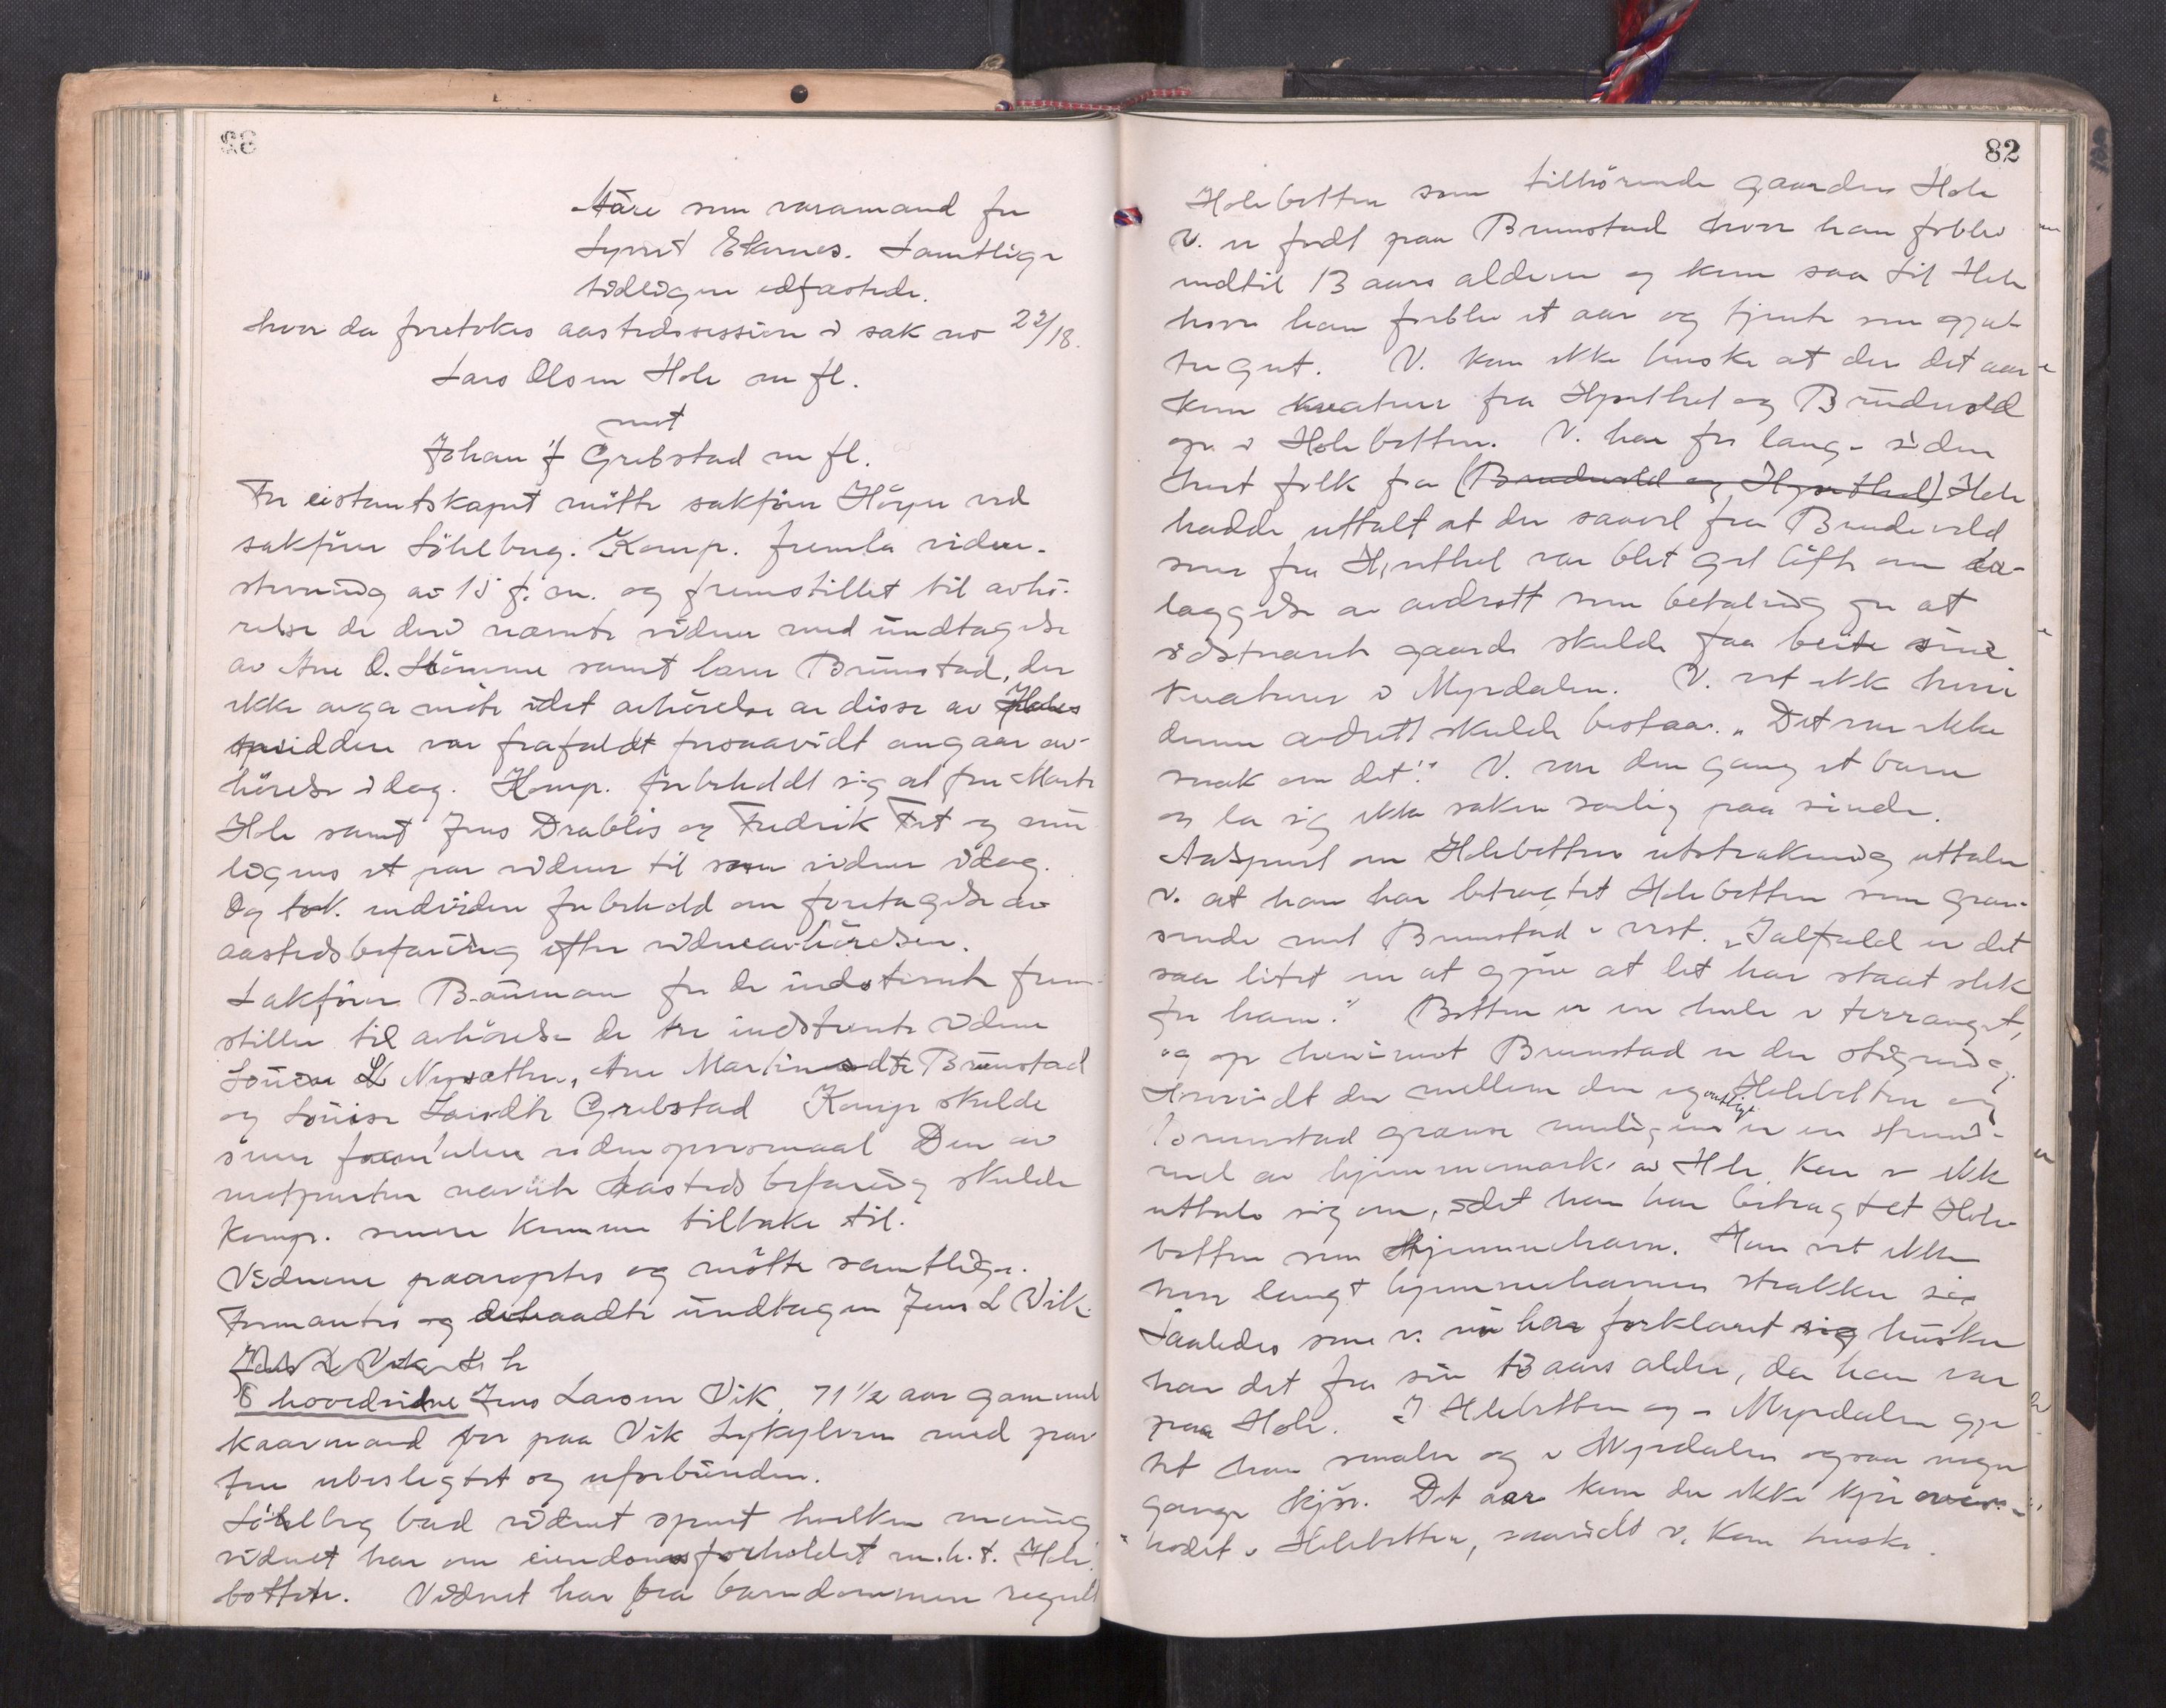 Aure som varamand for
Syvert Ekornes. Samtlige
tidligere edfæstede.
hvor da foretokes aastedssession i sak no 22/18.
Lars Olsen Hole m fl.
mot
Johan J Grebstad m fl.
For citantskapet mötte sakförer Höyer ved
sakförer Söhlberg. Komp. fremla vidne-
stevning av 15 f. m. og fremstillet til avhö-
relse de deri nævnte vidner med undtagelse
av Ane O. Strömme samt Brunstad, der
ikke avga möte idet avhörelse av disse av
var frafaldt forsaavidt angaar av-
hörelse idag. Komp. forbeholdt sig at före Marte
Hole samt Jens Drabløs og Fredrik Fet og mu-
ligens et par vidner til som vidner idag.
Og tok endvidere forbehold om foretagelse av
aastedsbefaring efter vidneavhörelsen.
Sakförer Bauman for de indstevnte frem-
stiller til avhörelse de tre indstevnte vidner
Louise L Nysæther, Ane Martinesdtr Brunstad
og Louise Larsdtr Grebstad Komp skulde
senere formulere vidnespörsmaal Den av
motparten nævnte aasteds befaring skulde
Komp. senere komme tilbake til.
Vidnerne paaroptes og mötte samtlige.
Formantes og utenom undtagen Jens L Vik.
6 hovedvidne Jens Larsen Vik, 71 1/2 aar gammel
kaarmand bor paa Vik Sykylven med par-
tene ubeslegtet og uforbunden.
Söhlberg bad vidnet spurt hvilken mening
vidnet har om eiendomsforholdet m.h.t. Hole-
botten. Vidnet har fra barndommen regnet
82
Holebotten som tilhörende gaarden Hole
V. er födt paa Brunstad hvor han forblev
indtil 13 aars alderen og kom saa til Hole
hvor han forblev et aar og tjente som gjæt-
tergut. V. kan ikke huske at der det aar
kom kreaturer fra Hjorthol og Brudevold
op i Holebotten. V. har for længe siden
hört folk fra (Brudevold og Hjorthol) Hole
hadde uttalt at der saavel fra Brudevold
som fra Hjorthol var blet git löfte om
læggelse av avdrott som betaling for at
sidstnævnte gaarde skulde faa beite sine
kreaturer i Myrdalen. V. vet ikke hvori
denne avdrott skulde bestaa. „Det var ikke
snak om det". V. var den gang et barn
og la sig ikke saken særlig paa sinde.
Adspurt om Holebottens utstrækning uttaler
v. at han har betragtet Holebotten som græn-
sende mot Brunstad i vest. „Ialfald er det
saa litet om at gjöre at det har staat slik
for ham." Botten er en hule i terrænget,
og op henimot Brunstad er der stigning.
Hvorvidt der mellem den egentlige Holebotten og
Brunstad grænse muligens er en strim-
mel av hjemmemark av Hole kan v ikke
uttale sig om, idet han har betragtet Hole-
botten som hjemmehavn. Han vet ikke
hvor langt hjemmehavnen strækker sig
Saaledes som v. nu har forklaret sig husker
han det fra sin 13 aars alder, da han var
paa Hole. I Holebotten og i Myrdalen gjæ-
tet han smaler og i Myrdalen ogsaa nogen
gange kjör. Det aar kom der ikke kjör over-
hodet i Holebotten, saavidt v. kan huske.